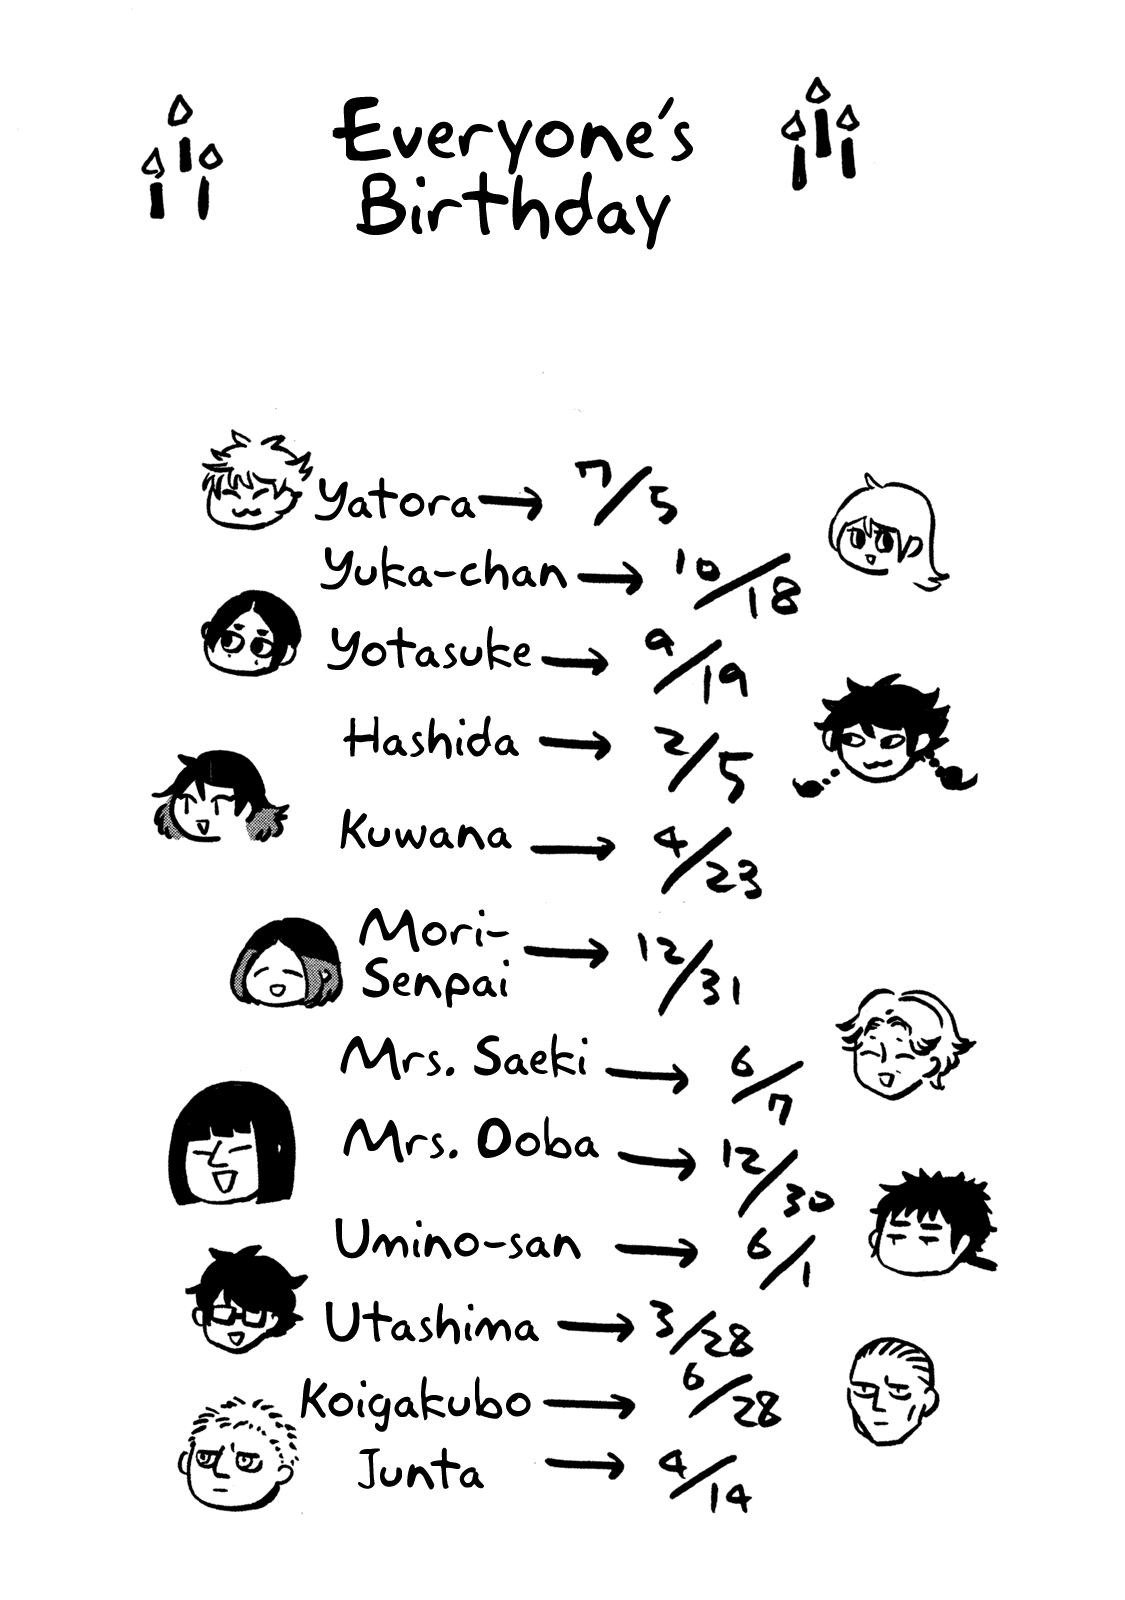 Everyone's
Birthday
Yatora → 7/5
Yuka-chan → 10/18
Yotasuke → 9/19
Hashida → 2/5
Kuwana → 4/23
Mori-
Senpai → 12/31
Mrs. Saeki → 6/7
Mrs. Ooba → 12/30
Umino-san → 6/1
Utashima → 3/28
Koigakubo → 6/28
Junta → 4/14